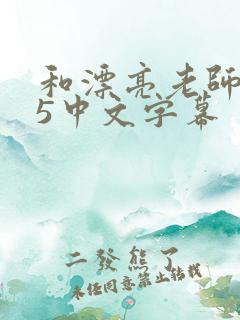 和漂亮老師
5中文字幕
二發熊了
未任同意禁止转载